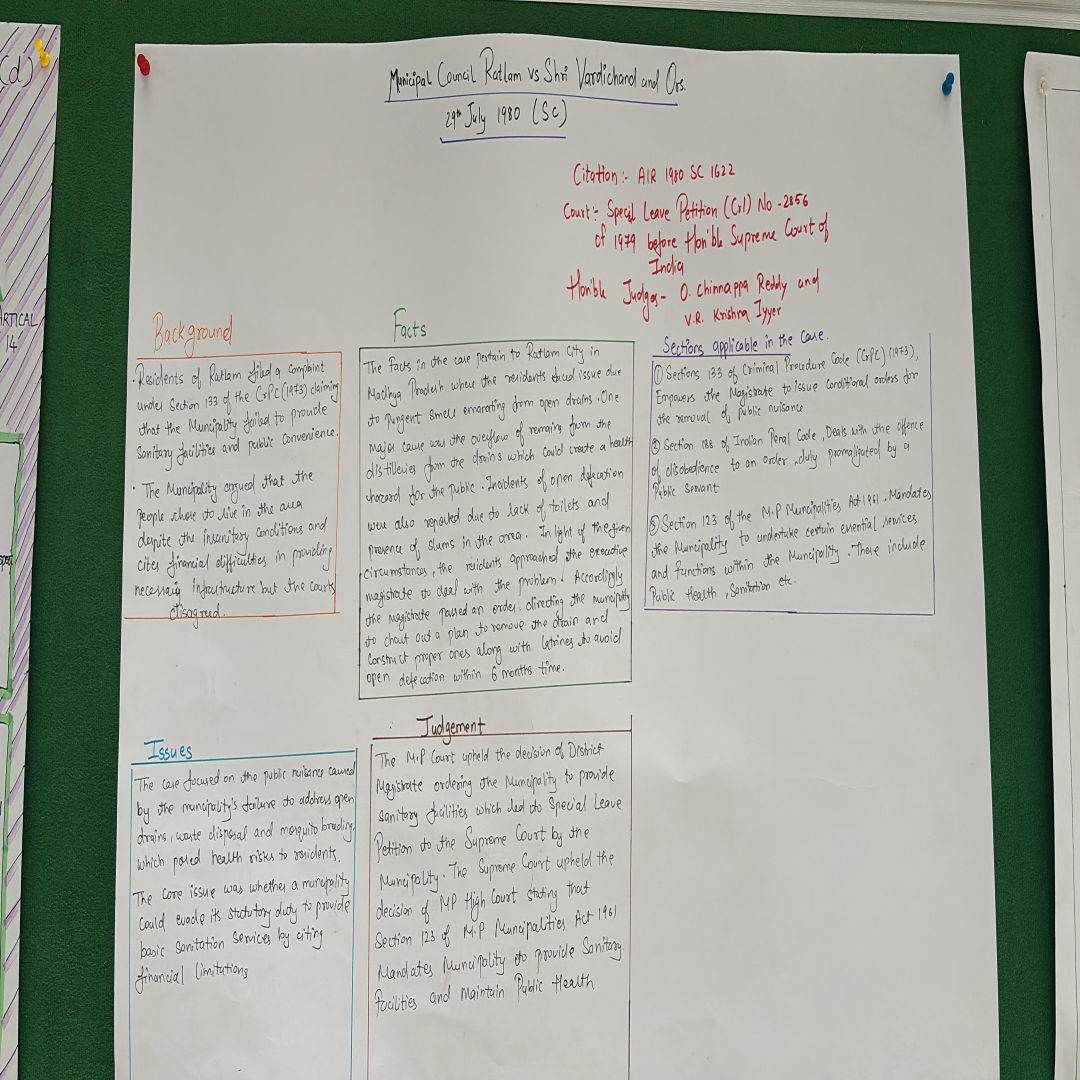 (d)
ARTICAL
14
Municipal Council Ratlam vs Shri Vardichand and Ors.
29th July 1980 (SC)
Citation:- AIR 1980 SC 1622
Court:- Special Leave Petition (Crl) No -2856
of 1979 before Hon'ble Supreme Court of
India
Hon'ble Judges- O. Chinnappa Reddy and
V.R. Krishna Iyyer
Background
· Residents of Ratlam filed a complaint
under Section 133 of the CrPC (1973) claiming
that the Municipality failed to provide
Sanitary facilities and public convenience.
· The Municipality argued that the
people chose to live in the area
despite the insanitary conditions and
cites financial difficulties in providing
necessary infrastructure but the courts
disagreed.
Facts
The Facts in the case pertain to Ratlam City in
Madhya Pradesh where the residents faced issue due
to Pungent smell emanating from open drains. One
major cause was the overflow of remains from the
distilleries from the drains which could create a health
hazard for the public. Incidents of open defecation
were also reported due to lack of toilets and
presence of slums in the area. In light of the given
circumstances, the residents approached the executive
magistrate to deal with the problem. Accordingly
the magistrate passed an order directing the municipality
to chart out a plan to remove the drain and
construct proper ones along with latrines to avoid
open defecation within 6 months time.
Sections applicable in the Case.
① Sections 133 of Criminal Procedure Code (CrPC) (1973),
Empowers the Magistrate to issue conditional orders for
the removal of public nuisance
② Section 188 of Indian Penal Code, Deals with the offence
of disobedience to an order, duly promulgated by a
Public Servant
③ Section 123 of the M.P Municipalities Act 1961. Mandates
the Municipality to undertake certain essential services
and functions within the Municipality. These include
Public Health, Sanitation etc.
Issues
The case focused on the public nuisance caused
by the municipality's failure to address open
drains, waste disposal and mosquito breeding,
which posed health risks to residents.
The core issue was whether a municipality
could evade its statutory duty to provide
basic Sanitation Services by citing
financial limitations
Judgement
The M.P Court upheld the decision of District
Magistrate ordering the Municipality to provide
sanitary facilities which led to Special Leave
Petition to the Supreme Court by the
Municipality. The Supreme Court upheld the
decision of MP High Court stating that
Section 123 of M.P Municipalities Act 1961
Mandates Municipality to provide Sanitary
Facilities and maintain Public Health